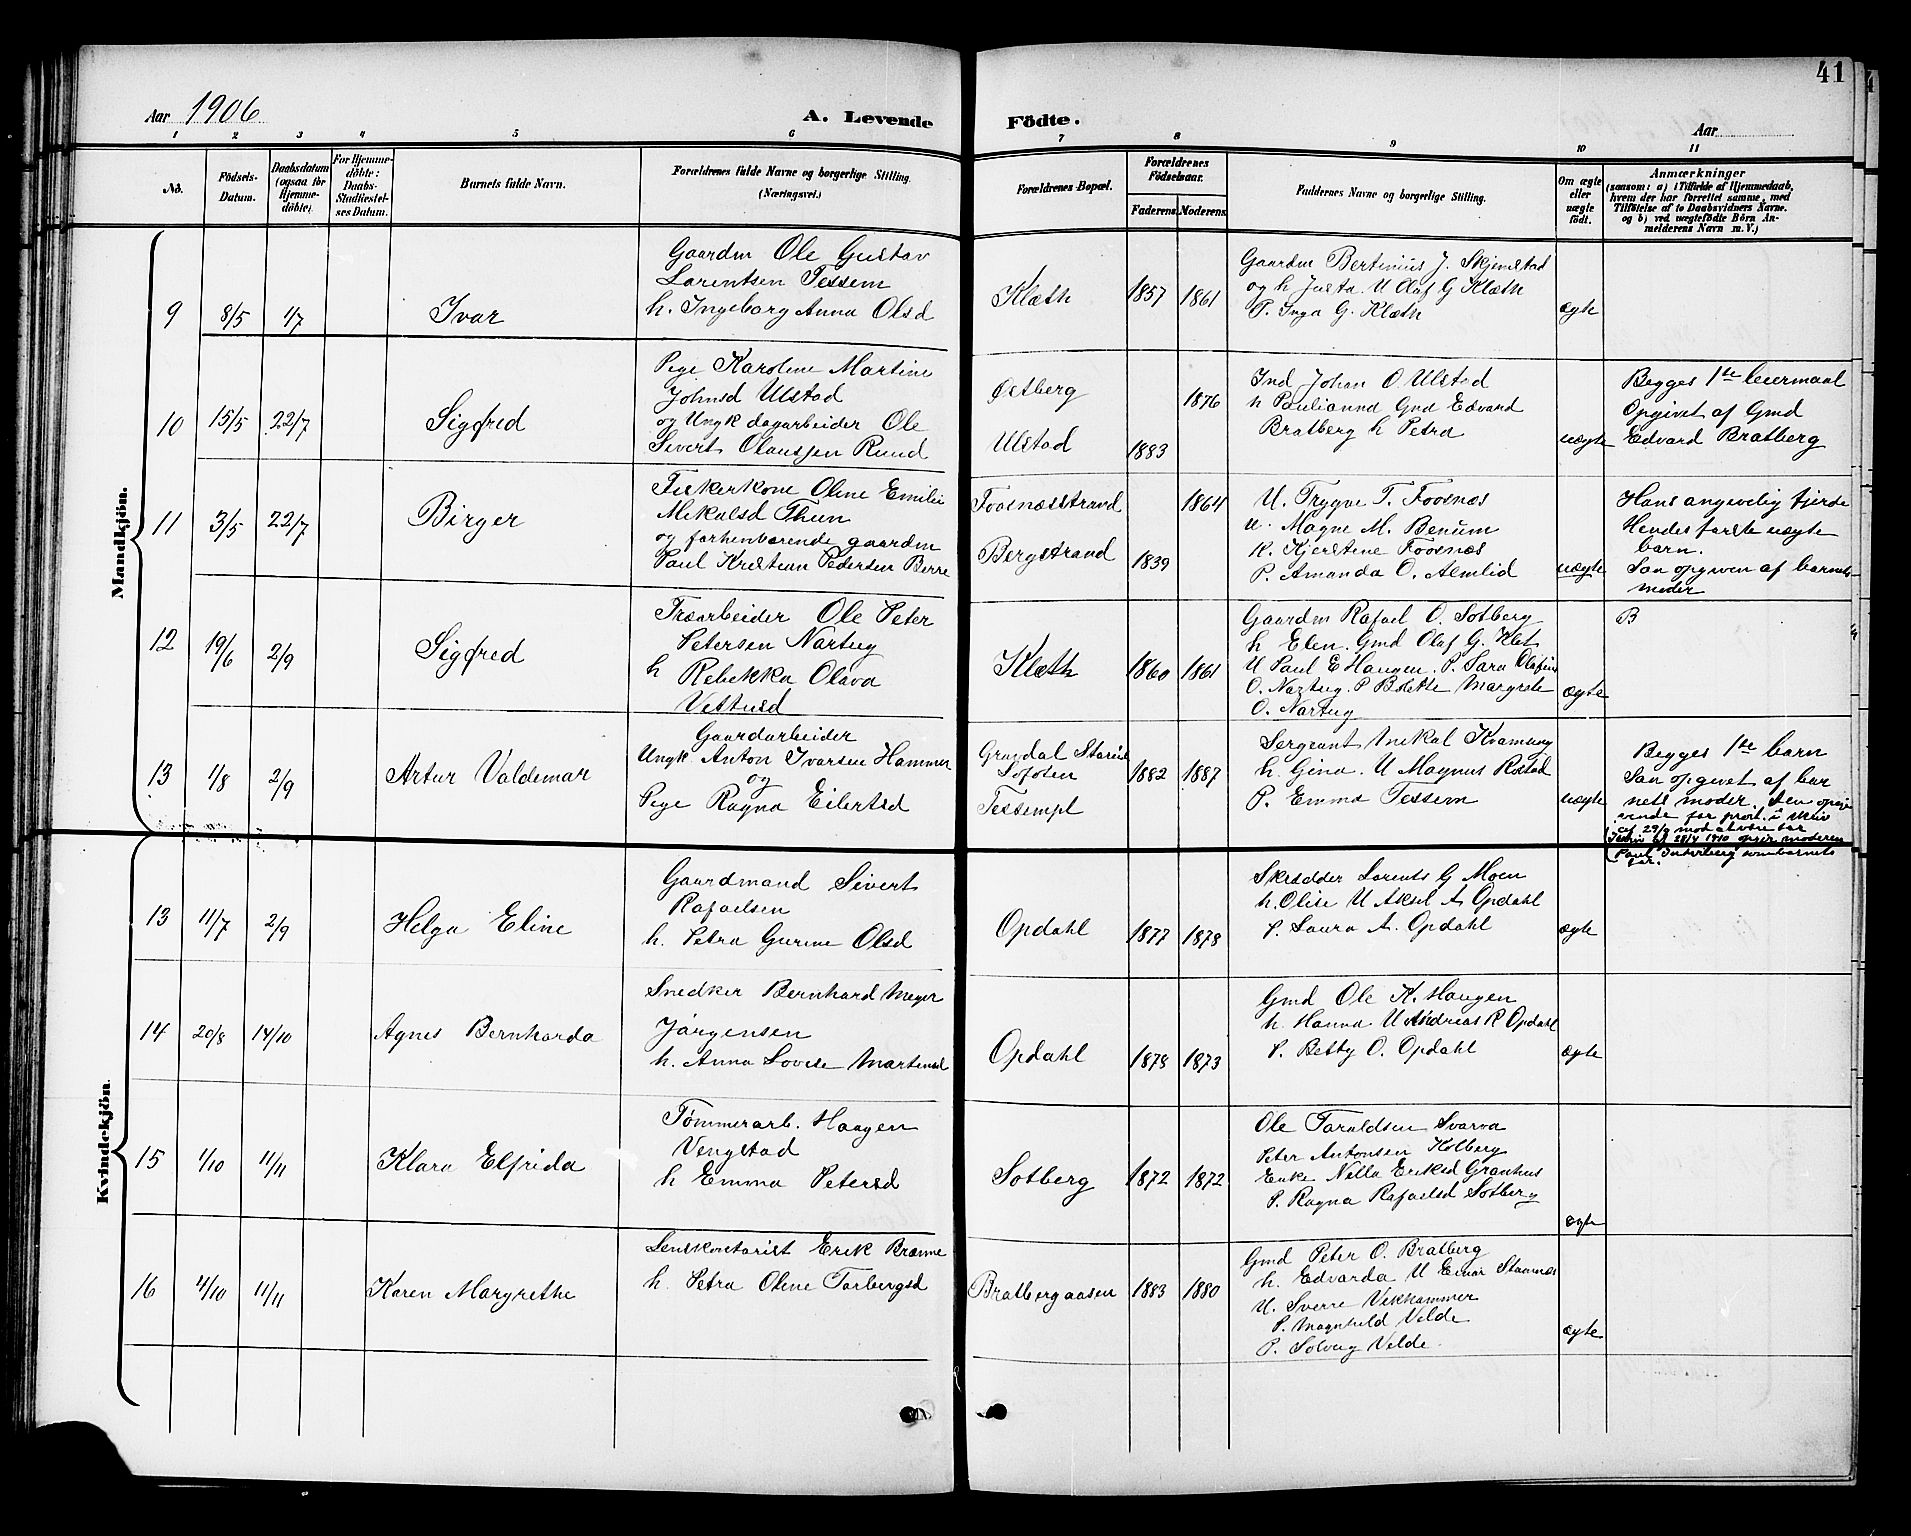 41
Aar 1906
A. Levende Födte.
Aar
1 2 3 4 5 6 7 8 9 10 11
No.
Födsels-Datum.
Daabsdatum (ogsaa for Hjemme-döbte)
For Hjemme-döbte: Daabs-Stadfæstel-ses Datum.
Barnets fulde Navn.
Forældrenes fulde Navne og borgerlige Stilling. (Næringsvei.)
Forældrenes Bopæl.
Forældrenes Födselsaar.
Faderens Moderens
Faddernes Navne og borgerlige Stilling.
Om ægte eller uægte födt.
Anmærkninger
(saasom: a) i Tilfælde af Hjemmedaab,
hvem der har forrettet samme, med
Tilföielse af to Daabsvidners Navne.
og b) ved uægtefödte Börn An-
melderens Navn m. V.)
Mandkjön.
9 8/5 1/7 Ivar
Gaardm Ole Gustav
Lorentsen Tessem
h. Ingeborg Anna Olsd
Klæth 1857 1861
Gaardm Bertinius J. Skjemstad
og h Justa. U Olaf G Klæth
P. Inga G. Klæth
ægte
10 15/5 22/7 Sigfred
Pige Karoline Martine
Johnsd Ulstad
og Ungk dagarbeider Ole
Sivert Olaussen Rund
Østberg 1876
Ulstad 1883
Ind Johan O Ulstad
h Paulianna Gmd Edvard
Bratberg h Petra
uægte
Begges 1ste leiermaal
Opgivet af Gmd
Edvard Bratberg
11 3/5 22/7 Birger
Fiskerkone Oline Emilie
Mikalsd Thun
og forhenværende gaardm
Paul Kristian Pedersen Berre
Foosnæsstrand 1864
Bergstrand 1839
U. Trygve T. Foosnæs
U. Magne M. Benum
K. Kjerstine Foosnæs
P. Amanda O. Almlid
uægte
Hans angivelig fjerde
Hendes første uægte
barn.
Saa opgiven af barnets
moder
12 19/6 2/9 Sigfred
Træarbeider Ole Peter
Petersen Nartug
h Rebekka Olava
Klæth 1860 1861
Gaardm Rafael O. Sotberg
h Elen. Gmd Olaf G. Klet
U Paul E Haugen. P. Sara Olefine
O. Nartug. P Bolette Margrete
O. Nartug
ægte
B
13 1/8 2/9 Artur Valdemar
Gaardarbeider
Ungk. Anton Ivarsen Hammer
og
Pige Ragna Eilertsd
Gravdal
Lofoten
Tessempl
1882 1887
Sergeant Mekal Kvamung
h. Gina. U Magnus Rostad
P. Emma Tessem
uægte
Begges 1ste barn
Saa opgivet af bar
nets moder. Den opgi
vende far prot. i skriv
af 29/9 mod at være far
28/4 1910 opgir moderen
Paul som barnets
far.
Kvindekjön.
13 11/7 2/9 Helga Eline
Gaardmand Sivert
Rafaelsen
h. Petra Gurine Olsd
Opdahl 1877 1878
Skrædder Lorents G Moen
h. Olise U Aksel A Opdahl
P. Laura A. Opdahl
ægte
14 20/8 14/10 Agnes Bernharda
Snedker Bernhard Meyer
Jørgensen
h. Anna Lovise Martinsd
Opdahl 1878 1873
Gmd Ole K. Haugen
h. Hanna U Andreas R Opdahl
P. Betty O. Opdahl
ægte
15 1/10 11/11 Klara Elfrida
Tømmerarb. Haagen
Vengstad
h Emma Petersd
Sotberg 1872 1872
Ole Taraldsen Svarva
Peter Antonsen Kolberg
Enke Nella Eriksd Granhus
P. Ragna Rafaelsd Sotberg
ægte
16 4/10 11/11 Karen Margrethe
Lenskontorist Erik Brænne
h. Petra Oline Torbergsd
Bratbergaasen 1883 1880
Gmd Peter O. Bratberg
h. Edvarda U Einar Staamæs
U. Sverre Vekhammer
P. Magnhild Velde
P. Solveig Velde
ægte